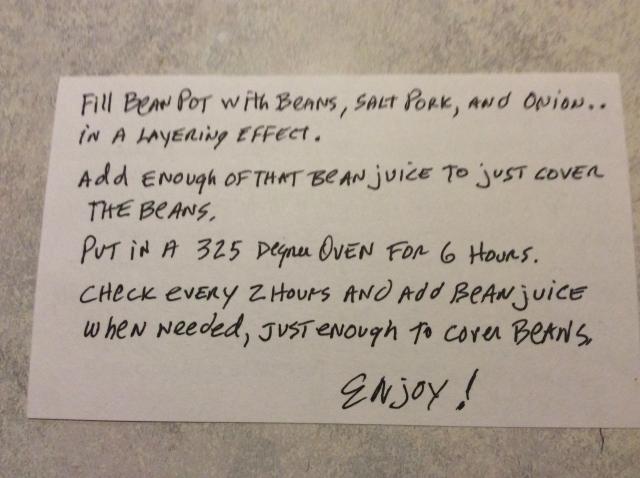 Fill Bean Pot with Beans, Salt Pork, and Onion..
in a layering effect.
Add enough of that bean juice to just cover
the beans.
Put in a 325 degree oven for 6 hours.
Check every 2 hours and add bean juice
when needed, just enough to cover beans.
Enjoy!